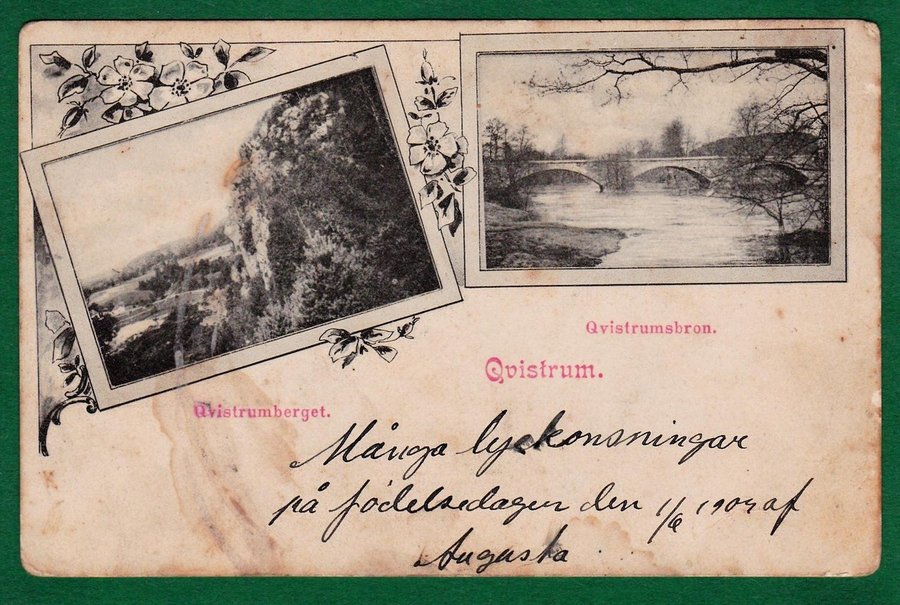 Qvistrumsbron.
Qvistrum.
Qvistrumberget.
Många lyckonsningar
på födelsedagen den 1/6 1904 af
Augusta